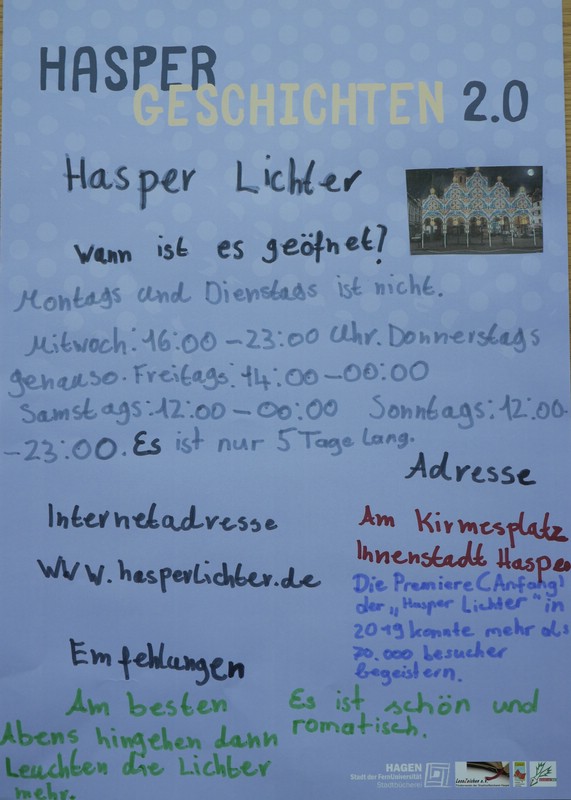 HASPER
GESCHICHTEN 2.0
Hasper Lichter
Wann ist es geöfnet?
Montags und Dienstags ist nicht.
Mitwoch: 16:00 – 23:00 Uhr. Donnerstags
genauso. Freitags: 14:00 – 00:00
Samstags: 12:00 – 00:00 Sonntags: 12:00
– 23:00. Es ist nur 5 Tage lang.
Adresse
Am Kirmesplatz
Innenstadt Haspe
Internetadresse
WWW.hasperlichter.de
Die Premiere (Anfang)
der „Hasper Lichter" in
2019 konnte mehr als
70.000 besucher
begeistern.
Emfehlungen
Am besten
Abens hingehen dann
Leuchten die Lichter
mehr.
Es ist schön und
romatisch.
HAGEN
Stadt der FernUniversität
Stadtbücherei